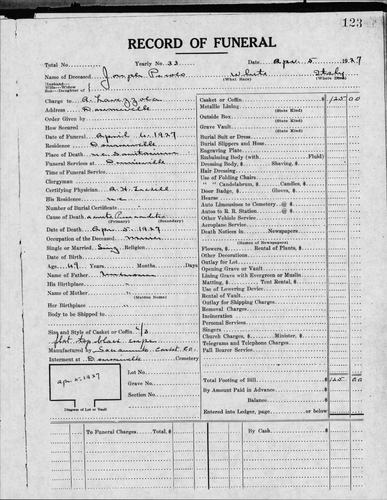 123
RECORD OF FUNERAL
Total No. Yearly No. 33 Date Apr. 5 1927
Name of Deceased Joseph White Italy
(What Race) (Where Born)
Husband of
Wife—Widow
Son—Daughter of
Charge to A.
Address Downieville
Order Given by
How Secured
Date of Funeral April 6, 1927
Residence Downieville
Place of Death
Funeral Services at Downieville
Time of Funeral Service
Clergyman
Certifying Physician A. H.
His Residence
Number of Burial Certificate
Cause of Death acute
(Primary) (Secondary)
Date of Death Apr 5, 1927
Occupation of the Deceased Miner
Single or Married Sing Religion
Date of Birth
Age 69 Years Months Days
Name of Father Unknown
His Birthplace "
Name of Mother "
(Maiden Name)
Her Birthplace "
Body to be Shipped to
Size and Style of Casket or Coffin 6/3
flat top black crape
Manufactured by Sacramento Casket Co.
Interment at Downieville Cemetery
Apr 5, 1927
Lot No.
Grave No.
Section No.
Diagram of Lot or Vault
Casket or Coffin $ 125 00
(State Kind)
Metallic Lining
Outside Box
(State Kind)
Grave Vault
(State Kind)
Burial Suit or Dress
Burial Slippers and Hose
Engraving Plate
Embalming Body (with Fluid)
Dressing Body, $ Shaving, $
Hair Dressing
Use of Folding Chairs
" " Candelabrum, $ Candles, $
Door Badge, $ Gloves, $
Hearse
Auto Limousines to Cemetery @ $
Autos to R. R. Station @ $
Other Vehicle Service
Aeroplane Service
Death Notices in Newspapers
(Names of Newspapers)
Flowers, $ Rental of Plants, $
Other Decorations
Outlay for Lot
Opening Grave or Vault
Lining Grave with Evergreen or Muslin
Matting, $ Tent Rental, $
Use of Lowering Device
Rental of Vault
Outlay for Shipping Charges
Removal Charges
Incineration
Personal Services
Singers
Church Charges, $ Minister, $
Telegrams and Telephone Charges
Pall Bearer Service
Total Footing of Bill $ 125 00
By Amount Paid in Advance
Balance
Entered into Ledger, page or below
To Funeral Charges Total, $
By Cash $